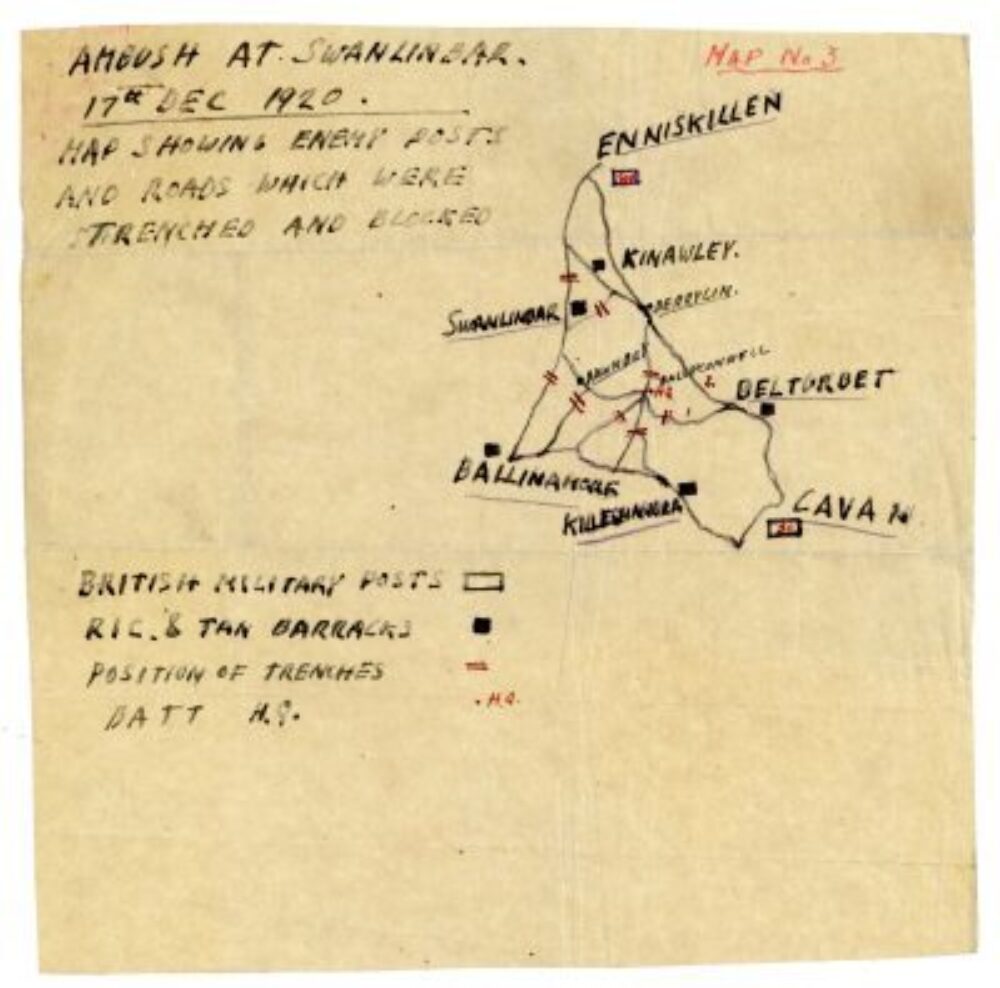 AMBUSH AT. SWANLINBAR.
17th DEC 1920.
MAP SHOWING ENEMY POSTS
AND ROADS WHICH WERE
TRENCHED AND BLOCKED
MAP No 3
ENNISKILLEN
KINAWLEY.
DERRYLIN.
SWANLINBAR
BALLYCONNELL
H.Q.
2
BELTURBET
1
BALLINAMORE
KILLESHANDRA
CAVAN
BRITISH MILITARY POSTS
R.I.C. & TAN BARRACKS
POSITION OF TRENCHES
BATT H.Q.
. H.Q.